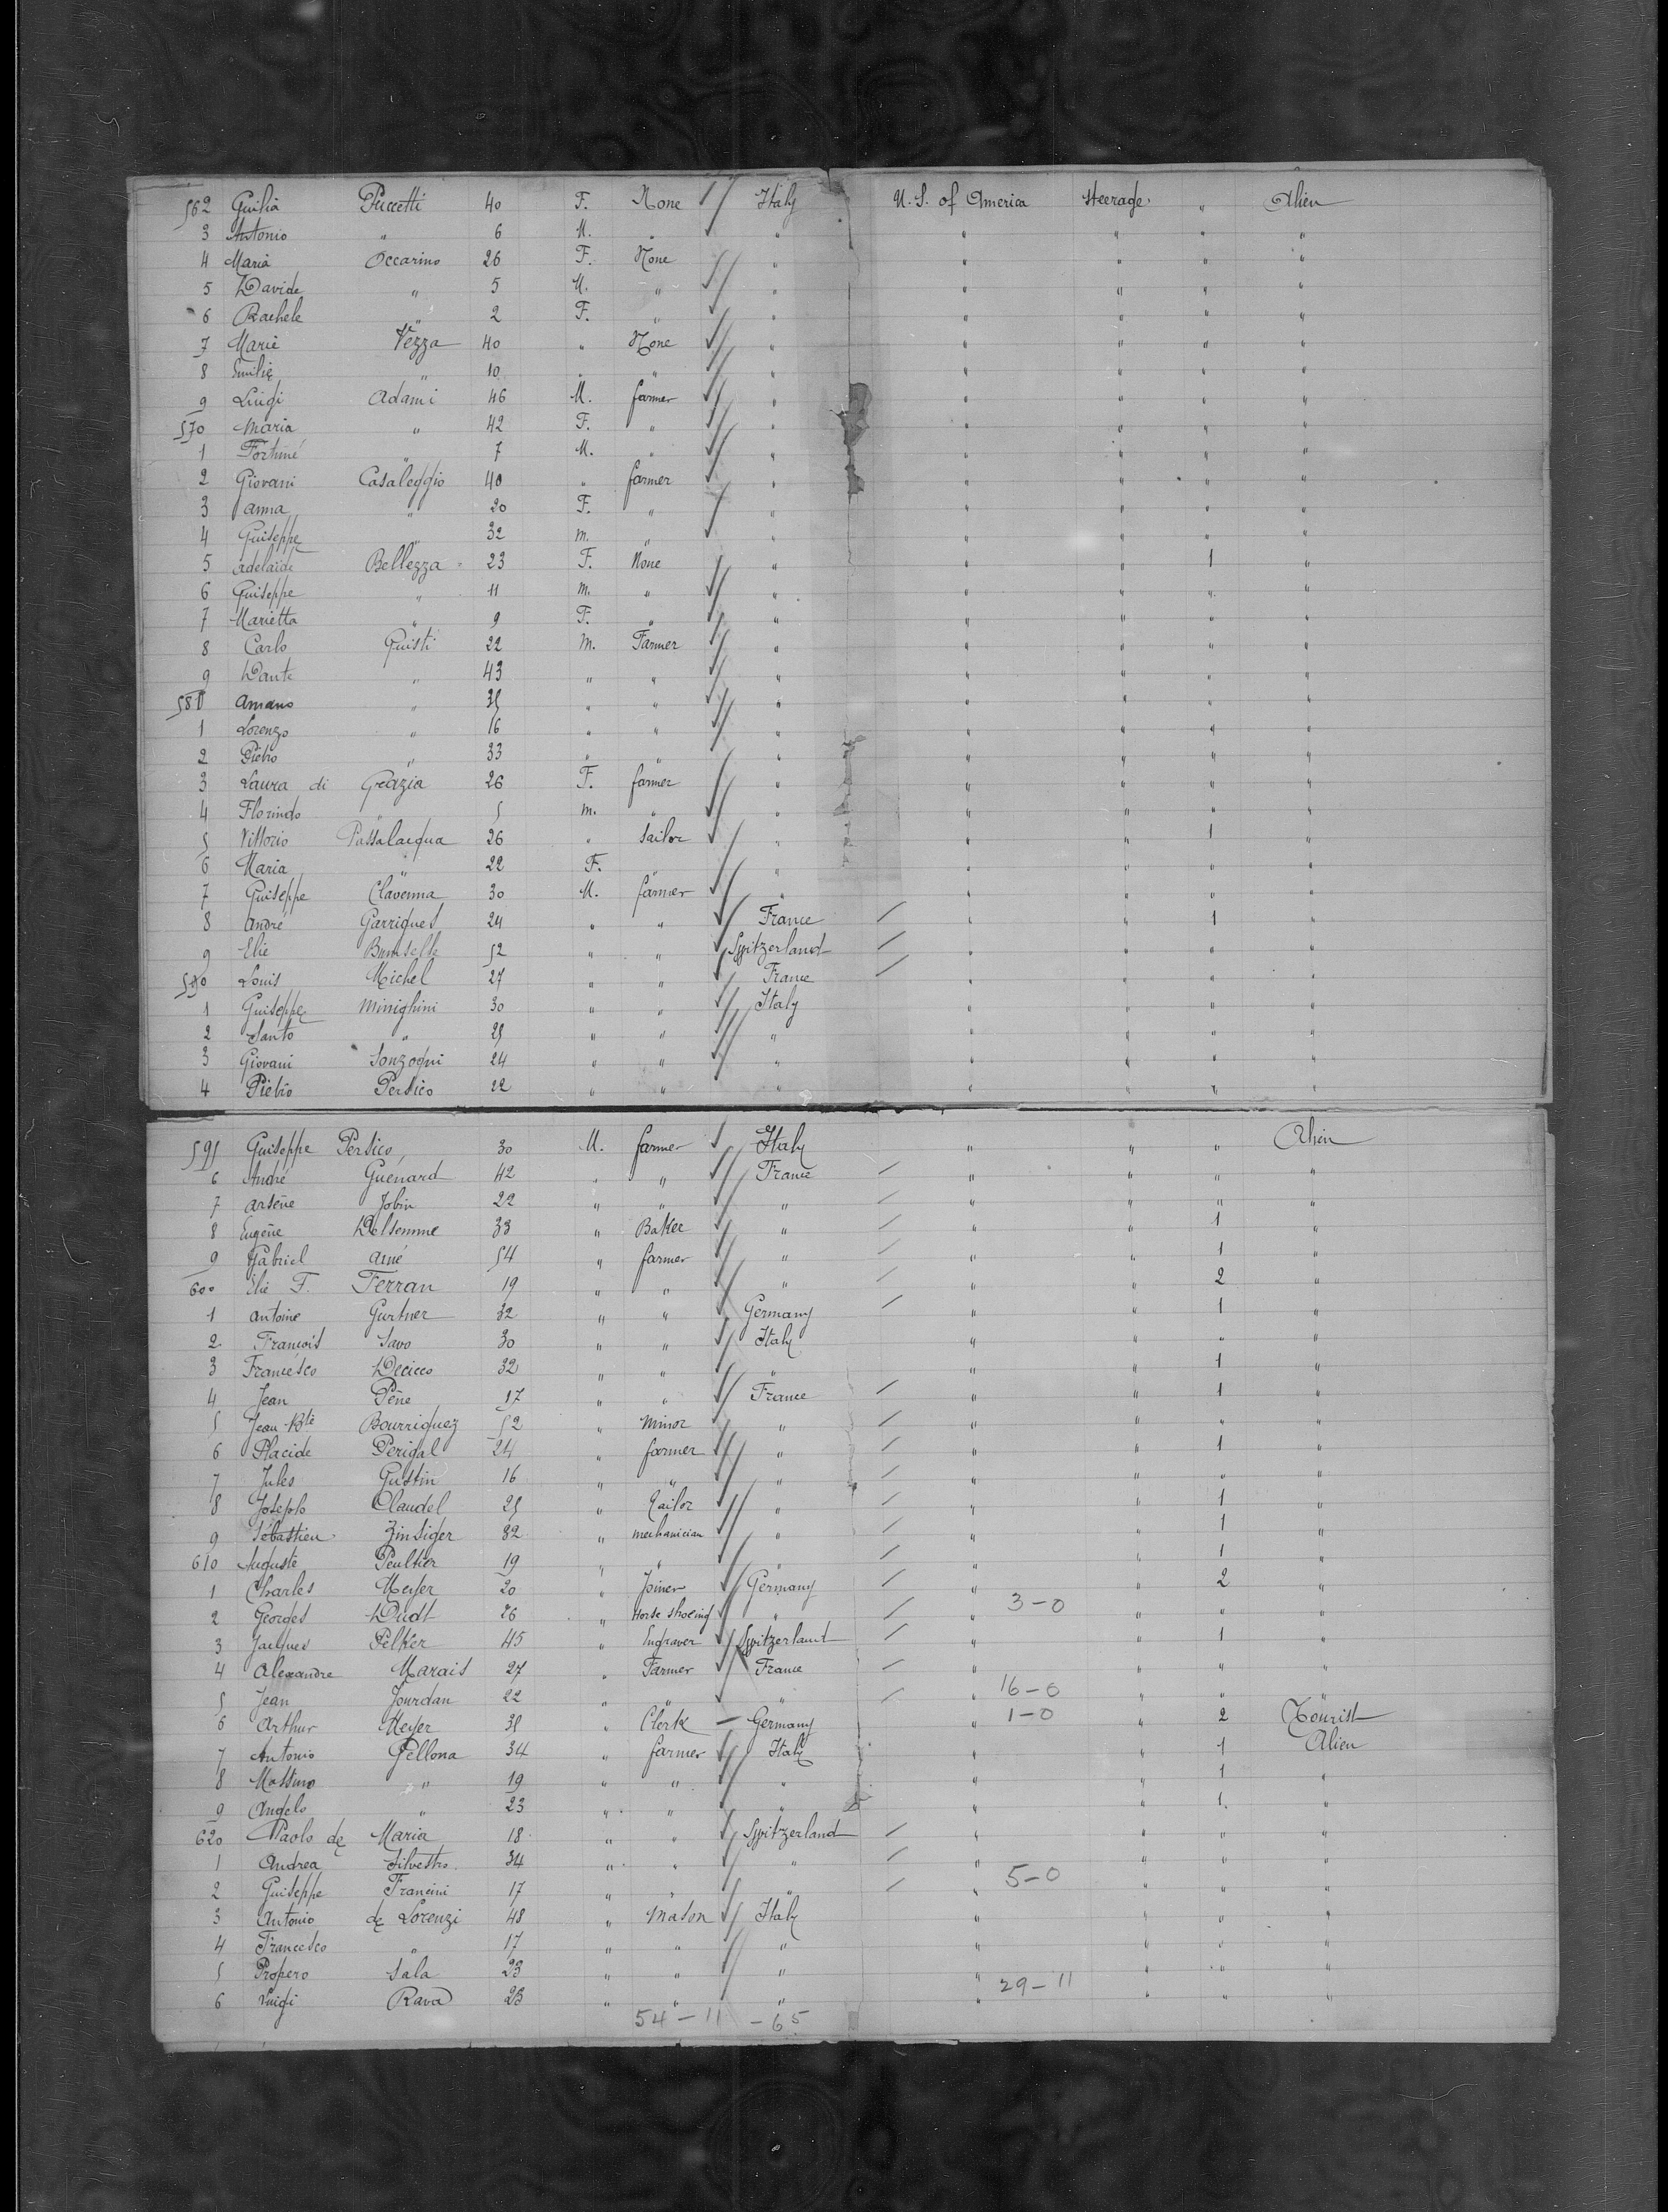 562 Guilia Puccetti 40 F. None Italy U.S. of America Steerage " Alien
3 Antonio " 6 M. " " " " " "
4 Maria Occarino 26 F. None " " " " "
5 Davide " 5 M. " " " " " "
6 Rachele " 2 F. " " " " " "
7 Marie Vezza 40 " None " " " " "
8 Emilie " 10 " " " " " " "
9 Luigi Adami 46 M. farmer " " " " "
570 Maria " 42 F. " " " " " "
1 Fortuné " 7 M. " " " " " "
2 Giovani Casaleggio 40 " farmer " " " " "
3 Anna " 20 F. " " " " " "
4 Guiseppe " 32 m. " " " " " "
5 Adelaide Bellezza 23 F. None " " " 1 "
6 Guiseppe " 11 m. " " " " " "
7 Marietta " 9 F. " " " " " "
8 Carlo Guisti 22 m. Farmer " " " " "
9 Dante " 43 " " " " " " "
580 Amano " 35 " " " " " " "
1 Lorenzo " 16 " " " " " " "
2 Piétro " 33 " " " " " " "
3 Laura di Grazia 26 F. farmer " " " " "
4 Florindo " 5 m. " " " " " "
5 Vittorio Passalacqua 26 " Sailor " " " 1 "
6 Maria " 22 F. " " " " " "
7 Guiseppe Clavenna 30 M. farmer " " " " "
8 André Garrigues 24 " " France " " 1 "
9 Elie 52 " " Switzerland " " " "
590 Louis Michel 27 " " France " " " "
1 Guiseppe Minighini 30 " " Italy " " " "
2 Santo " 25 " " " " " " "
3 Giovani Sonzogni 24 " " " " " " "
4 Piétro Persico 22 " " " " " " "
595 Guiseppe Persico, 30 M. farmer Italy " " " Alien
6 André Guenard 42 " " France " " " "
7 Arsène Jobin 22 " " " " " " "
8 Eugène Delsemme 33 " Baker " " " 1 "
9 Gabriel Arné 54 " farmer " " " 1 "
600 Elie F. Ferran 19 " " " " " 2 "
1 Antoine Gurtner 32 " " Germany " " 1 "
2 François Savo 30 " " Italy " " " "
3 Francesco Decicco 32 " " " " " 1 "
4 Jean Pène 17 " " France " " 1 "
5 Jean-Bte Bourriquez 52 " Minor " " " " "
6 Placide Perigal 24 " farmer " " " 1 "
7 Jules Gustin 16 " " " " " " "
8 Joseph Claudel 25 " Tailor " " " 1 "
9 Sébastien Zinsiger 32 " mechanician " " " 1 "
610 Auguste Peultier 19 " " " " " 1 "
1 Charles Meyer 20 " Joiner Germany " " 2 "
2 Georges Dudt 26 " Horse shoeing " " 3-0 " " "
3 Jacques Pelker 45 " Engraver Switzerland " " 1 "
4 Alexandre Marais 27 " Farmer France " " " "
5 Jean Jourdan 22 " " " " 16-0 " " "
6 Arthur Meyer 35 " Clerk Germany " 1-0 " 2 Tourist
7 Antonio Gellona 34 " farmer Italy " " 1 Alien
8 Massimo " 19 " " " " " 1 "
9 Angelo " 23 " " " " " 1. "
620 Paolo de Maria 18 " " Switzerland " " " "
1 Andrea Silvestro 34 " " " " " " "
2 Guiseppe Francini 17 " " " " 5-0 " " "
3 Antonio de Lorenzi 48 " Mason Italy " " " "
4 Francesco " 17 " " " " " " "
5 Propero Sala 23 " " " " " " "
6 Luigi Rava 23 " " " " 29-11 " " "
54-11-65